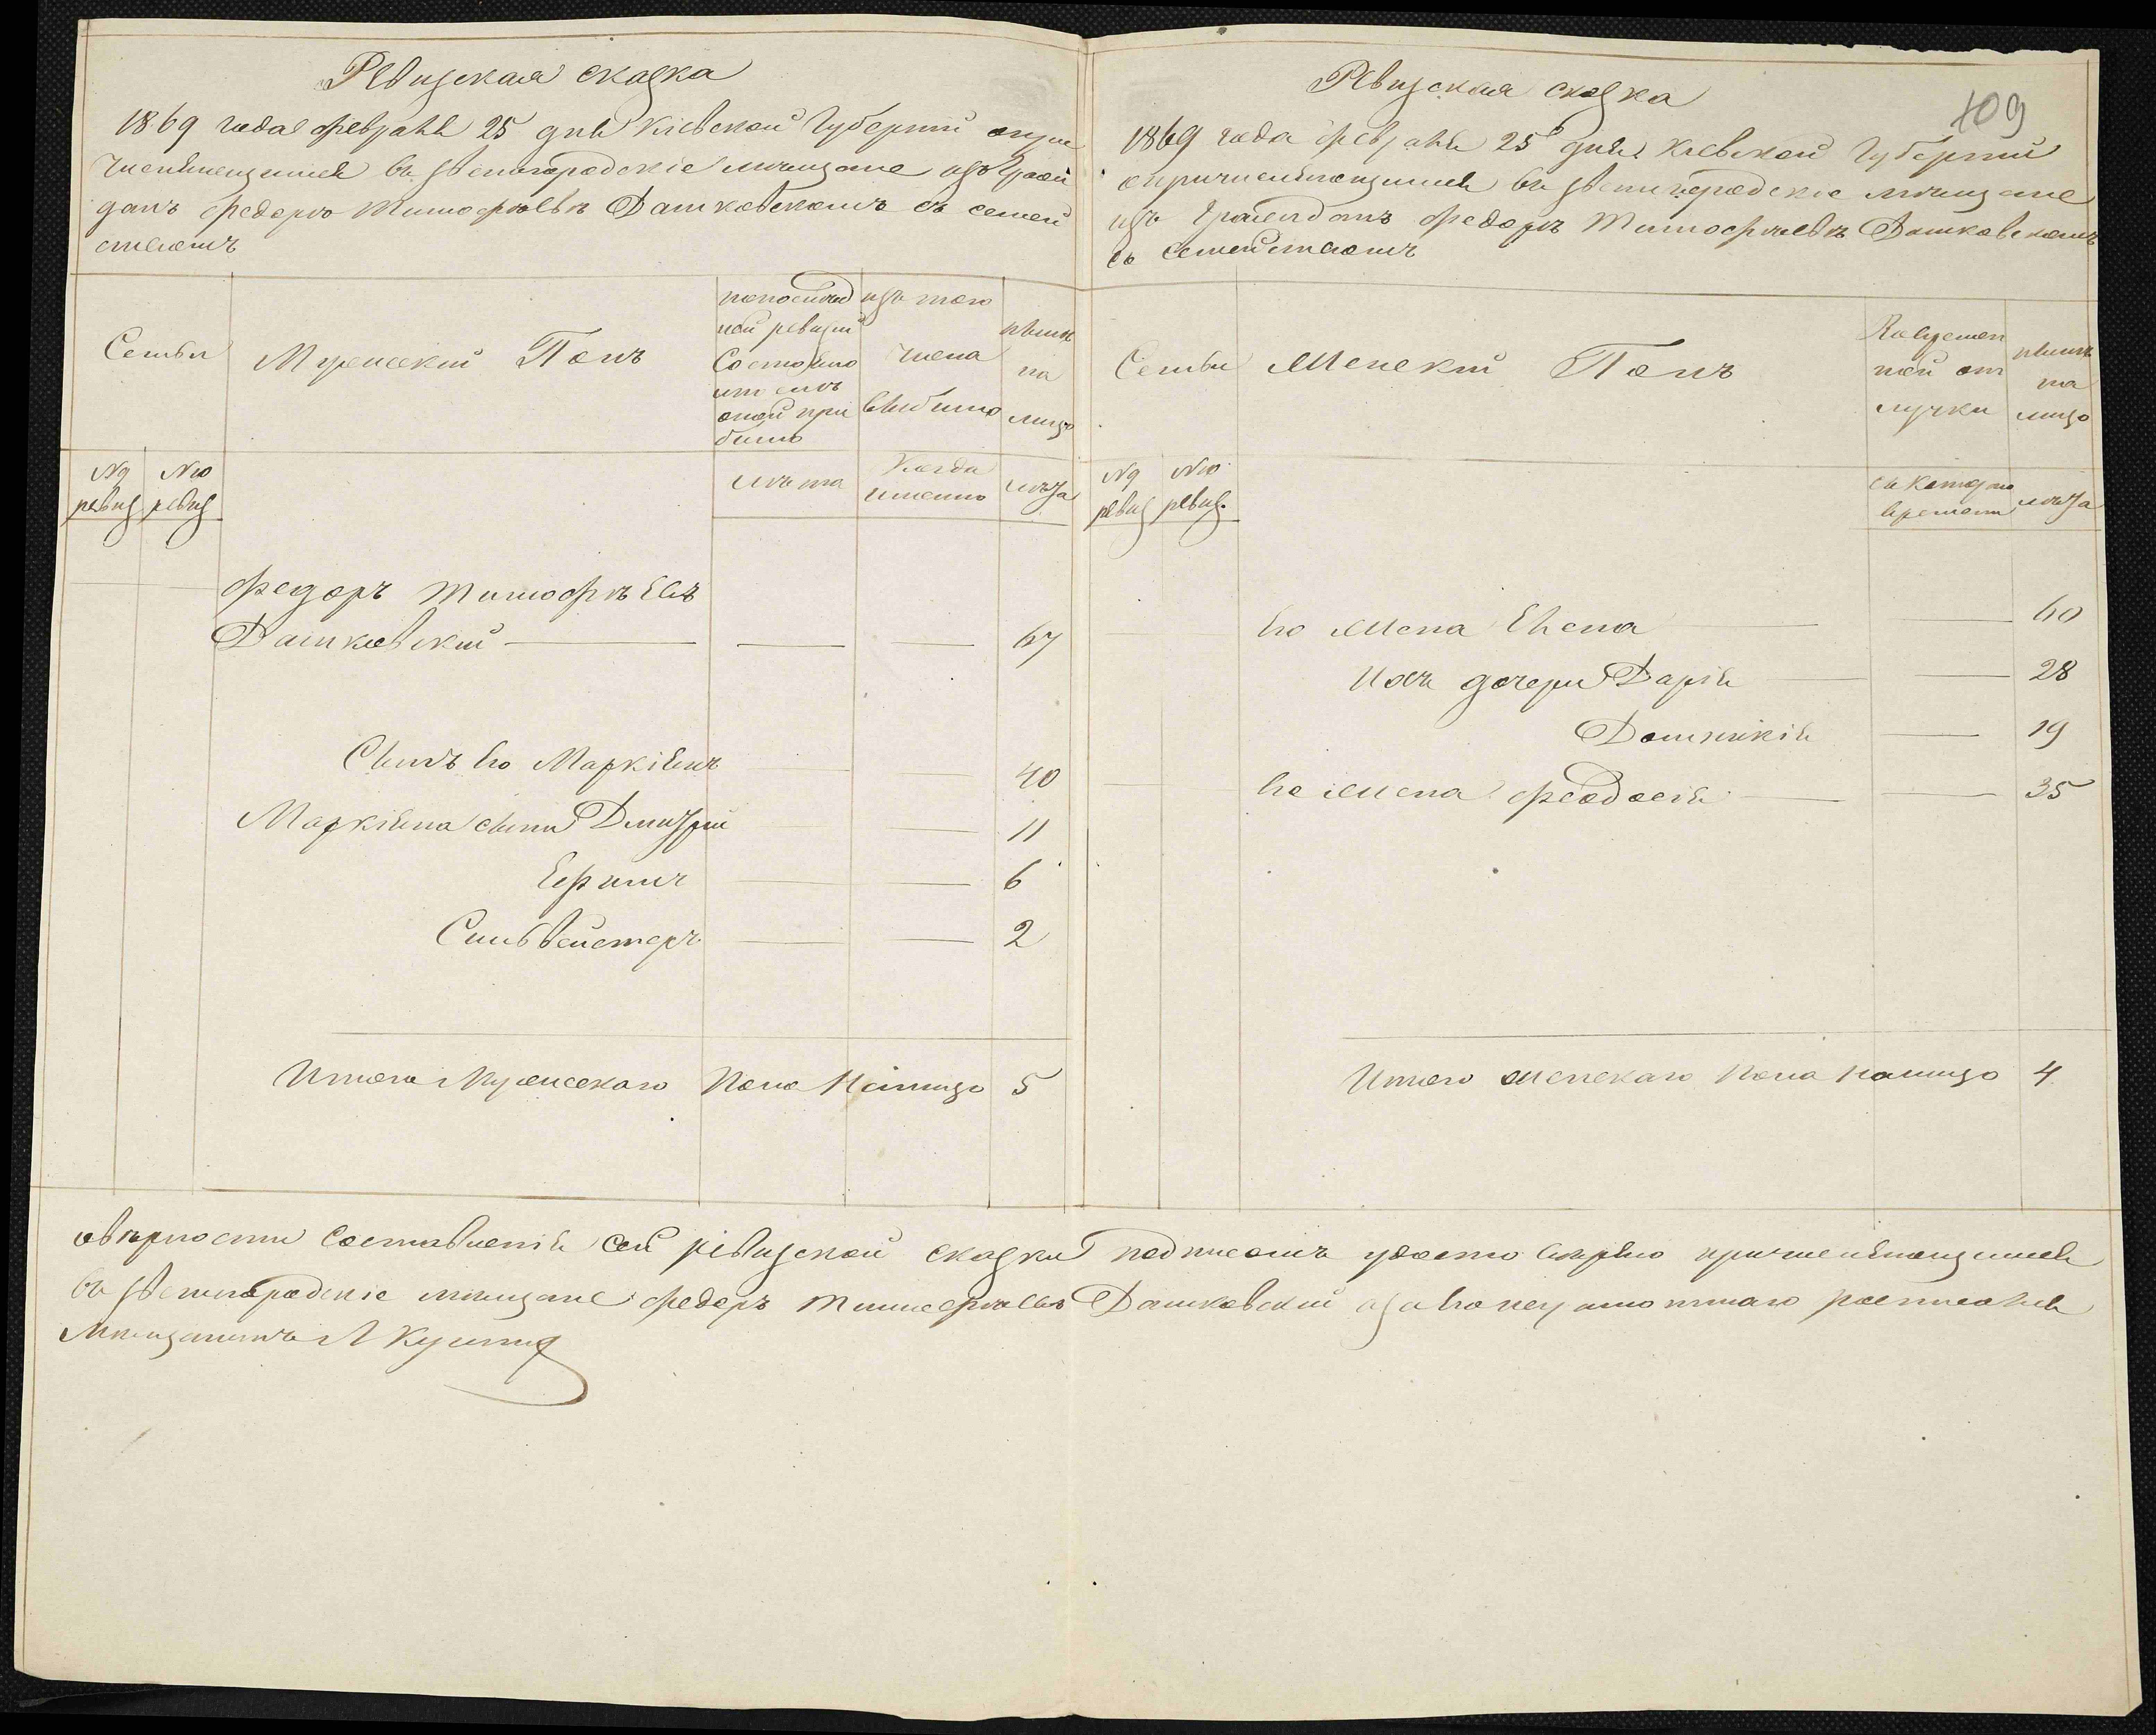 Ревизская сказка
1869 года февраля 25 дня Кіевской Губерніи опри
числяющимся въ Звенигородскіе мѣщане изъ Граж
данъ Федорѣ Тимофѣевѣ Дашковскомъ съ семей
ствомъ
Семьи
Мужескій Полъ
попослѣд
ней ревизіи
Состояло
или послѣ
оной при
было
изъ того
числа
выбыло
нынѣ
на
лицо
№9
ревиз
№10
ревиз
лѣта
Когда
именно
лѣта
Федоръ Тимофѣевъ
Дашковскій 67
Сынъ Его Маркіянъ 40
Маркіяна сыны Дмитрій 11
Ефимъ 6
Сильвестеръ 2
Итого Мужескаго Пола Налицо 5
Ревизская сказка
109
1869 года февраля 25 дня Кіевской Губерніи
опричисляющимся въ Звенигородскіе мѣщане
изъ Гражданъ Федорѣ Тимофѣевѣ Дашковскомъ
съ семействомъ
Семьи
Женскій Полъ
Вовремен
ной от
лучки
нынѣ
на
лицо
№9
ревиз
№10
ревиз.
съ котораго
времени
лѣта
Его Жена Елена 60
Ихъ дочери Дарія 28
Домникія 19
Его Жена Феодосія 35
Итого Женскаго Пола Налицо 4
овѣрности составленія сей ревизской сказки подписомъ удостовѣряю причисляющимся
въ Звенигородскіе мѣщане Федоръ Тимофѣевъ Дашковскій азаЕго неграмотнаго росписался
Мѣщанинъ Л